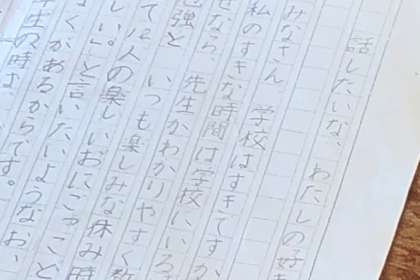 話したいな、わたしの好き
みなさん、学校はすきですか
私のすきな時間は学校にいる
ぜなら、先生がわかりやすく教
強と、いつも楽しみな休み時
て12人の楽しいおにごっこと
しい。」と言いたいようなお、
よくがあるからです。
年生の時は